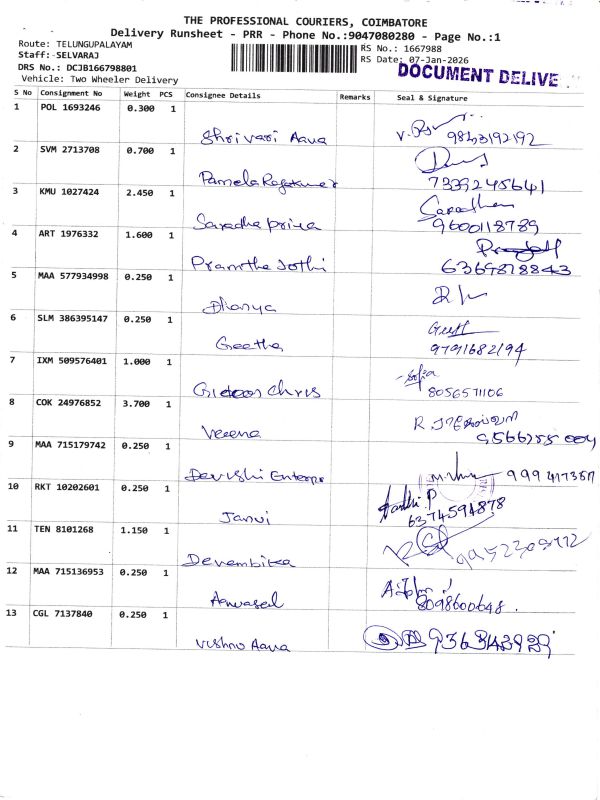 THE PROFESSIONAL COURIERS, COIMBATORE
Delivery Runsheet - PRR - Phone No.:9047080280 - Page No.:1
Route: TELUNGUPALAYAM
RS No.: 1667988
Staff: SELVARAJ
RS Date: 07-Jan-2026
DRS No.: DCJB166798801
DOCUMENT DELIVE
Vehicle: Two Wheeler Delivery
S No Consignment No Weight PCS Consignee Details Remarks Seal & Signature
1 POL 1693246 0.300 1
Shrivari Aava 9843192192
2 SVM 2713708 0.700 1
Pamela Rajakumar 7339245641
3 KMU 1027424 2.450 1
Saradha priya 9600118789
4 ART 1976332 1.600 1
Pranitha Jothi 6369878843
5 MAA 577934998 0.250 1
Dhanya
6 SLM 386395147 0.250 1
Geetha 9791682194
7 IXM 509576401 1.000 1
Sofia
Gideon Chris 8056571106
8 COK 24976852 3.700 1
Veena
9 MAA 715179742 0.250 1
Devishi Enterpr
10 RKT 10202601 0.250 1
Janvi 6374594878
11 TEN 8101268 1.150 1
Devambika
12 MAA 715136953 0.250 1
8098600648
13 CGL 7137840 0.250 1
Vishnu Aava